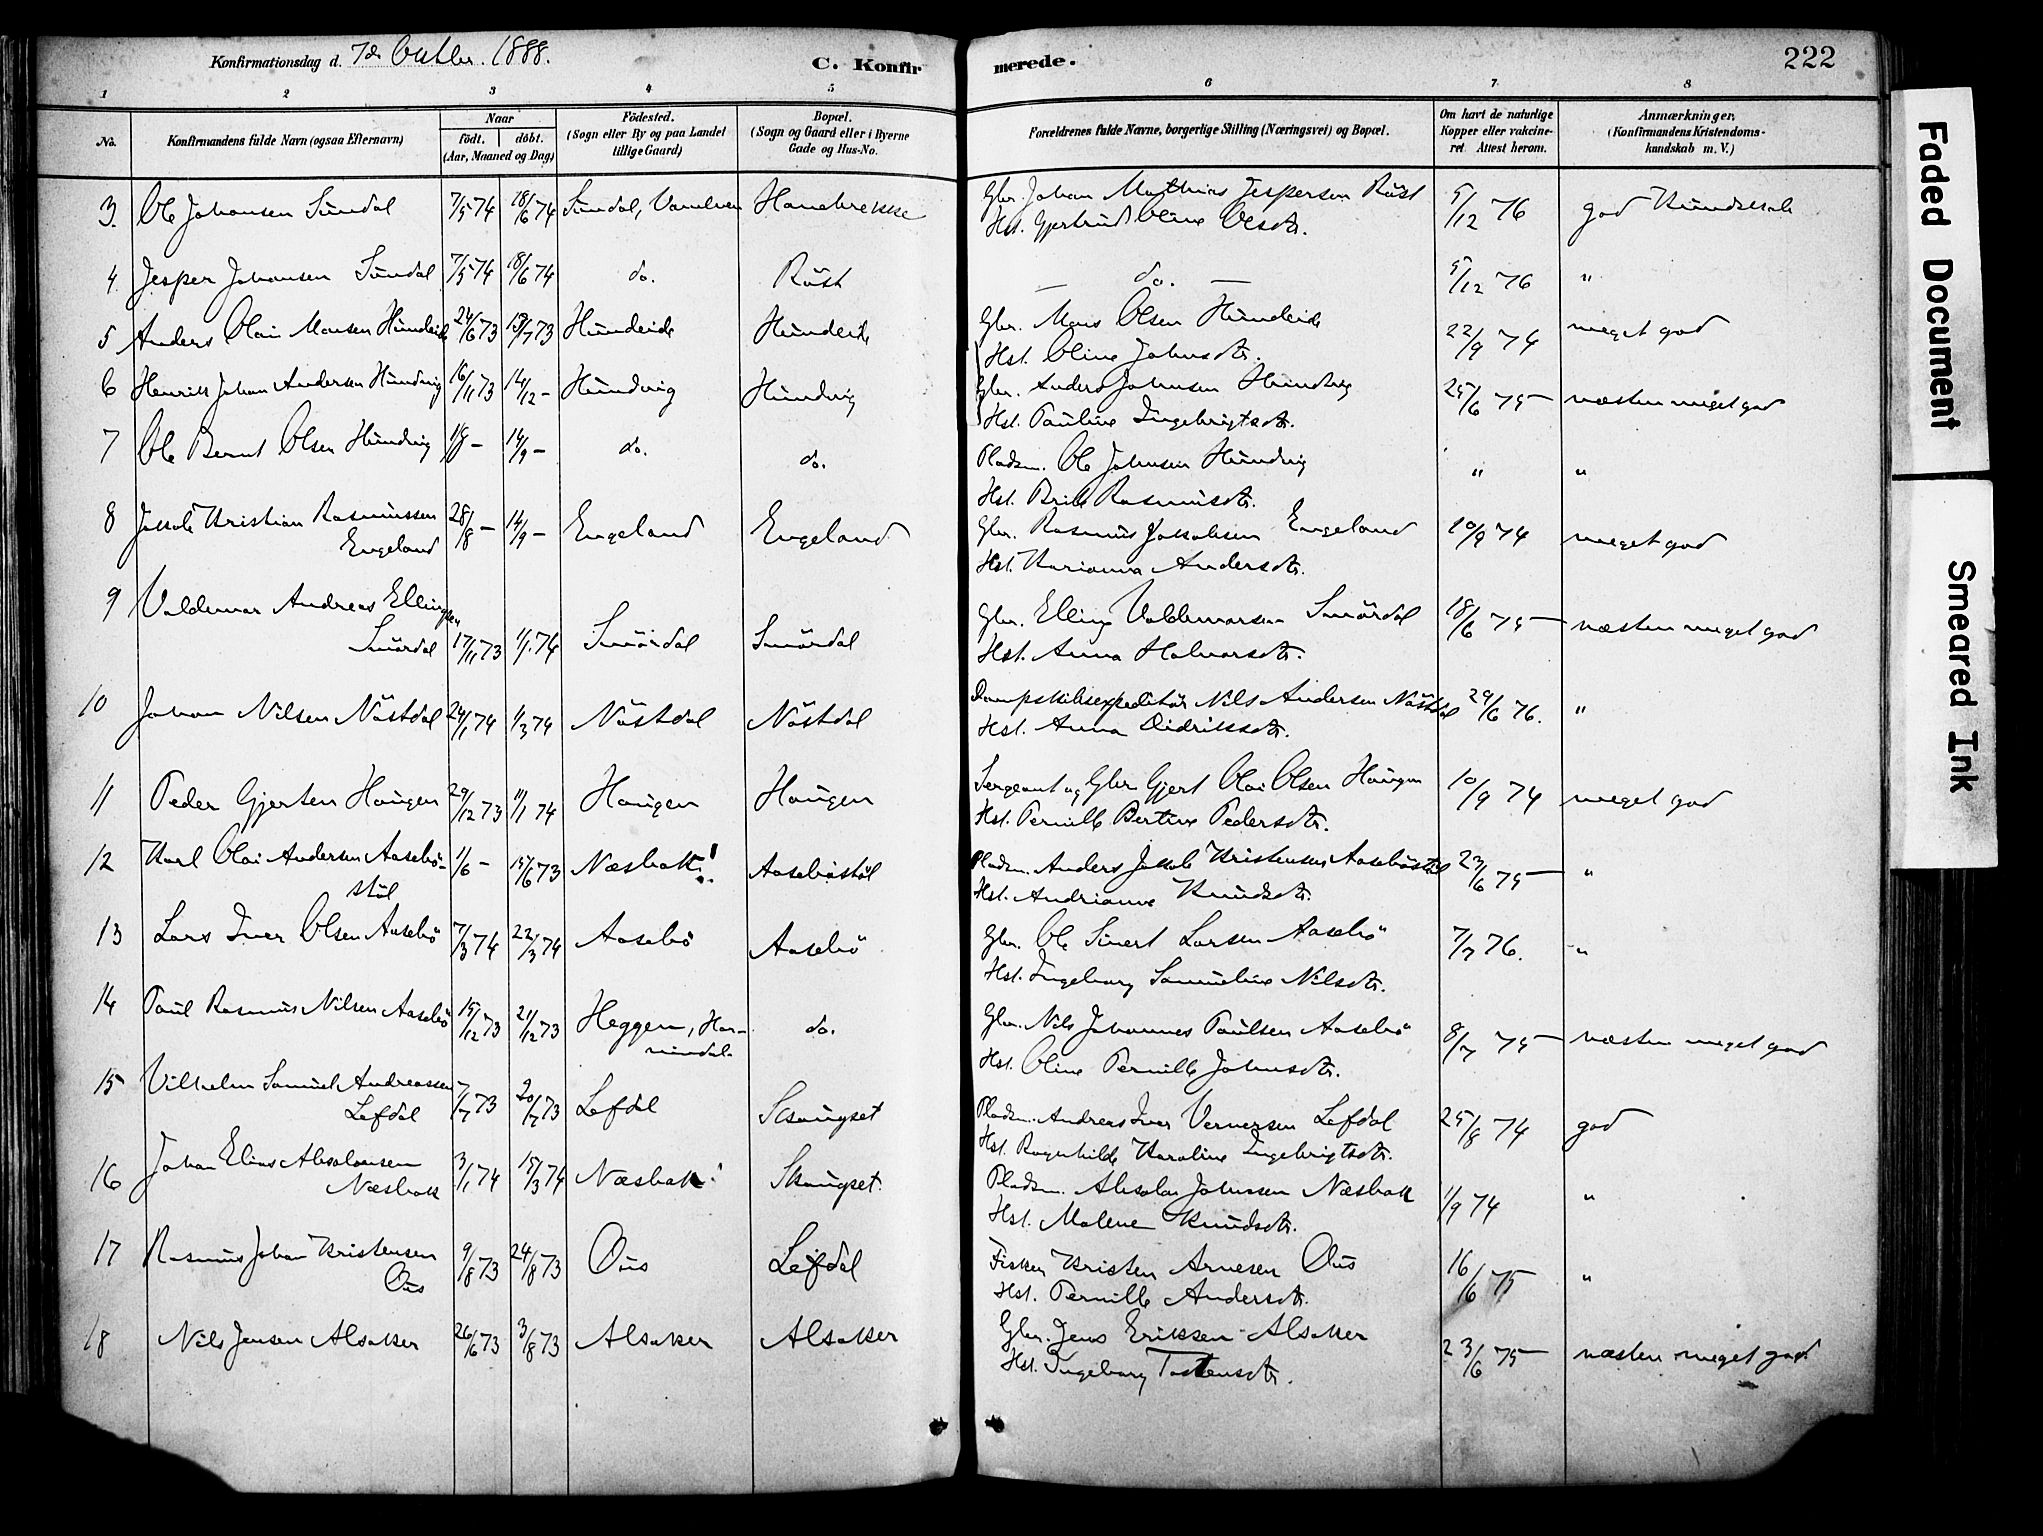 Konfirmationsdag d. 7de Octbr. 1888.
C. Konfir
merede.
222
1 2 3 4 5 6 7 8
No.
Konfirmandens fulde Navn (ogsaa Efternavn)
Naar
födt. döbt.
(Aar, Maaned og Dag)
Födested.
(Sogn eller By og paa Landet
tillige Gaard)
Bopæl.
(Sogn og Gaard eller i Byerne
Gade og Hus-No.
Forældrenes fulde Navne, borgerlige Stilling (Næringsvei) og Bopæl.
Om havt de naturlige
Kopper eller vakcine-
ret. Attest herom.
Anmærkninger.
(Konfirmandens Kristendoms-
kundskab m. V.)
3. Ole Johansen Sundal 7/5 74 18/6 74 Sundal, Vanelven Hanebrekke Gbr. Johan Mathias Jespersen Röst 5/12 76 god Kundskab
Hst. Gjertrud Oline Olsdtr.
4. Jesper Johansen Sundal 7/5 74 18/6 74 do. Röst — do. — 5/12 76 "
5 Anders Olai Monsen Hundeide 24/6 73 13/7 73 Hundeide Hundeide Gbr. Mons Olsen Hundeide 22/9 74 meget god
Hst. Oline Johnsdtr.
6 Henrik Johan Andersen Hundvig 16/11 73 14/12 - Hundvig Hundvig Gbr. Anders Johnsen Hundvig 25/6 75 næsten meget god
Hst. Pauline Ingebrigtsdtr.
7 Ole Bernt Olsen Hundvig 1/9 - 14/9 - do. do. Pladsm. Ole Johnsen Hundvig " "
Hst. Brite Rasmusdtr.
8 Jakob Kristian Rasmussen 28/8 - 14/9 - Engeland Engeland Gbr. Rasmus Jakobsen Engeland 10/9 74 meget god
Engeland
Hst. Karianna Andersdtr.
9 Valdemar Andreas Ellingsen
Smördal 17/11 73 1/1 74 Smördal Smördal Gbr. Elling Valdemarsen Smördal 18/6 75 næsten meget god
Hst. Anna Halvorsdtr.
10 Johan Nilsen Nöstdal 24/1 74 1/3 74 Nöstdal Nöstdal Dampskibsexpeditör Nils Andersen Nöstdal 29/6 76. "
Hst. Anna Didriksdtr.
11 Peder Gjertsen Haugen 29/12 73 11/1 74 Haugen Haugen Sergeant og Gbr Gjert Olai Olsen Haugen 10/9 74 meget god
Hst. Pernille Bertine Pedersdtr.
12 Karl Olai Andersen Aasebö- 1/6 - 15/6 73 Næsbak! Aaseböstöl Pladsm. Anders Jakob Kristensen Aaseböstöl 23/6 75 "
stöl
Hst. Andrianne Knudsdtr.
13 Lars Iver Olsen Aasebö 7/3 74 22/3 74 Aasebö Aasebö Gbr. Ole Sivert Larsen Aasebö 7/7 76. "
Hst. Ingeborg Samueline Nilsdtr.
14 Paul Rasmus Nilsen Aasebö 15/12 73 21/12 73 Heggen, Hor- do. Gbr. Nils Johannes Paulsen Aasebö 8/7 75 næsten meget god
nindal.
Hst. Oline Pernille Johnsdtr.
15 Vilhelm Samuel Andreassen 7/7 73 20/7 73 Lefdal Skaugset Pladsm. Andreas Iver Vernersen Lefdal 25/8 74 god
Lefdal
Hst. Ragnhilde Karoline Ingebrigtsdtr.
16 Johan Elias Absalonsen 3/1 74 15/3 74 Næsbak Skaugset Pladsm. Absalon Johnsen Næsbak 1/9 74 "
Næsbak
Hst. Malene Knudsdtr.
17 Rasmus Johan Kristensen 9/8 73 24/8 73 Ous Lefdal Fisker Kristen Arnesen Ous 16/6 75 "
Ous
Hst. Pernille Andersdtr.
18 Nils Jensen Alsaker 26/6 73 3/8 73 Alsaker Alsaker Gbr. Jens Eriksen Alsaker 23/6 75 næsten meget god
Hst. Ingeborg Tostensdtr.
Faded Document
Smeared Ink